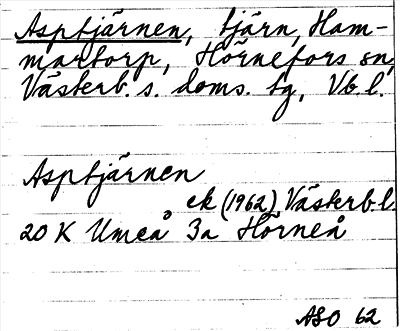 Asptjärnen, tjärn, Ham-
martorp, Hörnefors sn,
Västerb. s. doms. tg, Vb. l.
Asptjärnen
ek (1962) Västerb. l.
20 K Umeå 3a Hörneå
ASO 62